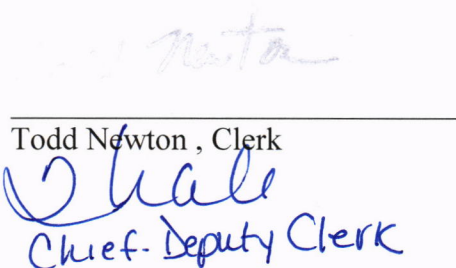 Newton
Todd Newton , Clerk
Chief-Deputy Clerk